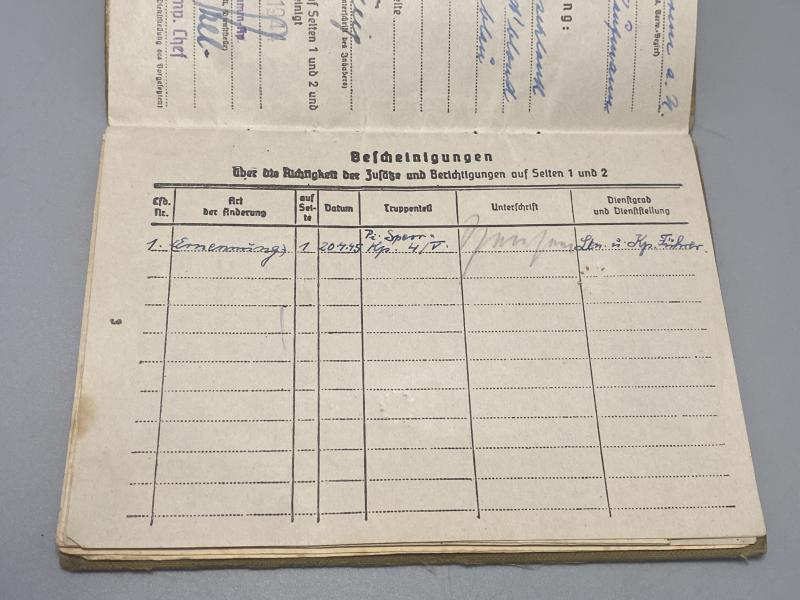 Bescheinigungen
über die Richtigkeit der Zusätze und Berichtigungen auf Seiten 1 und 2
Lfd. Nr.
Art der Änderung
auf Sei-te
Datum
Truppenteil
Unterschrift
Dienstgrad und Dienststellung
1. Ernennung 1 20.4.45 Pi. Sperr-
Kp. 4/V. Ltn. u. Kp. Führer
3
1944
mp. Chef
f Seiten 1 und 2 und
einigt
ng:
blau
d'blond